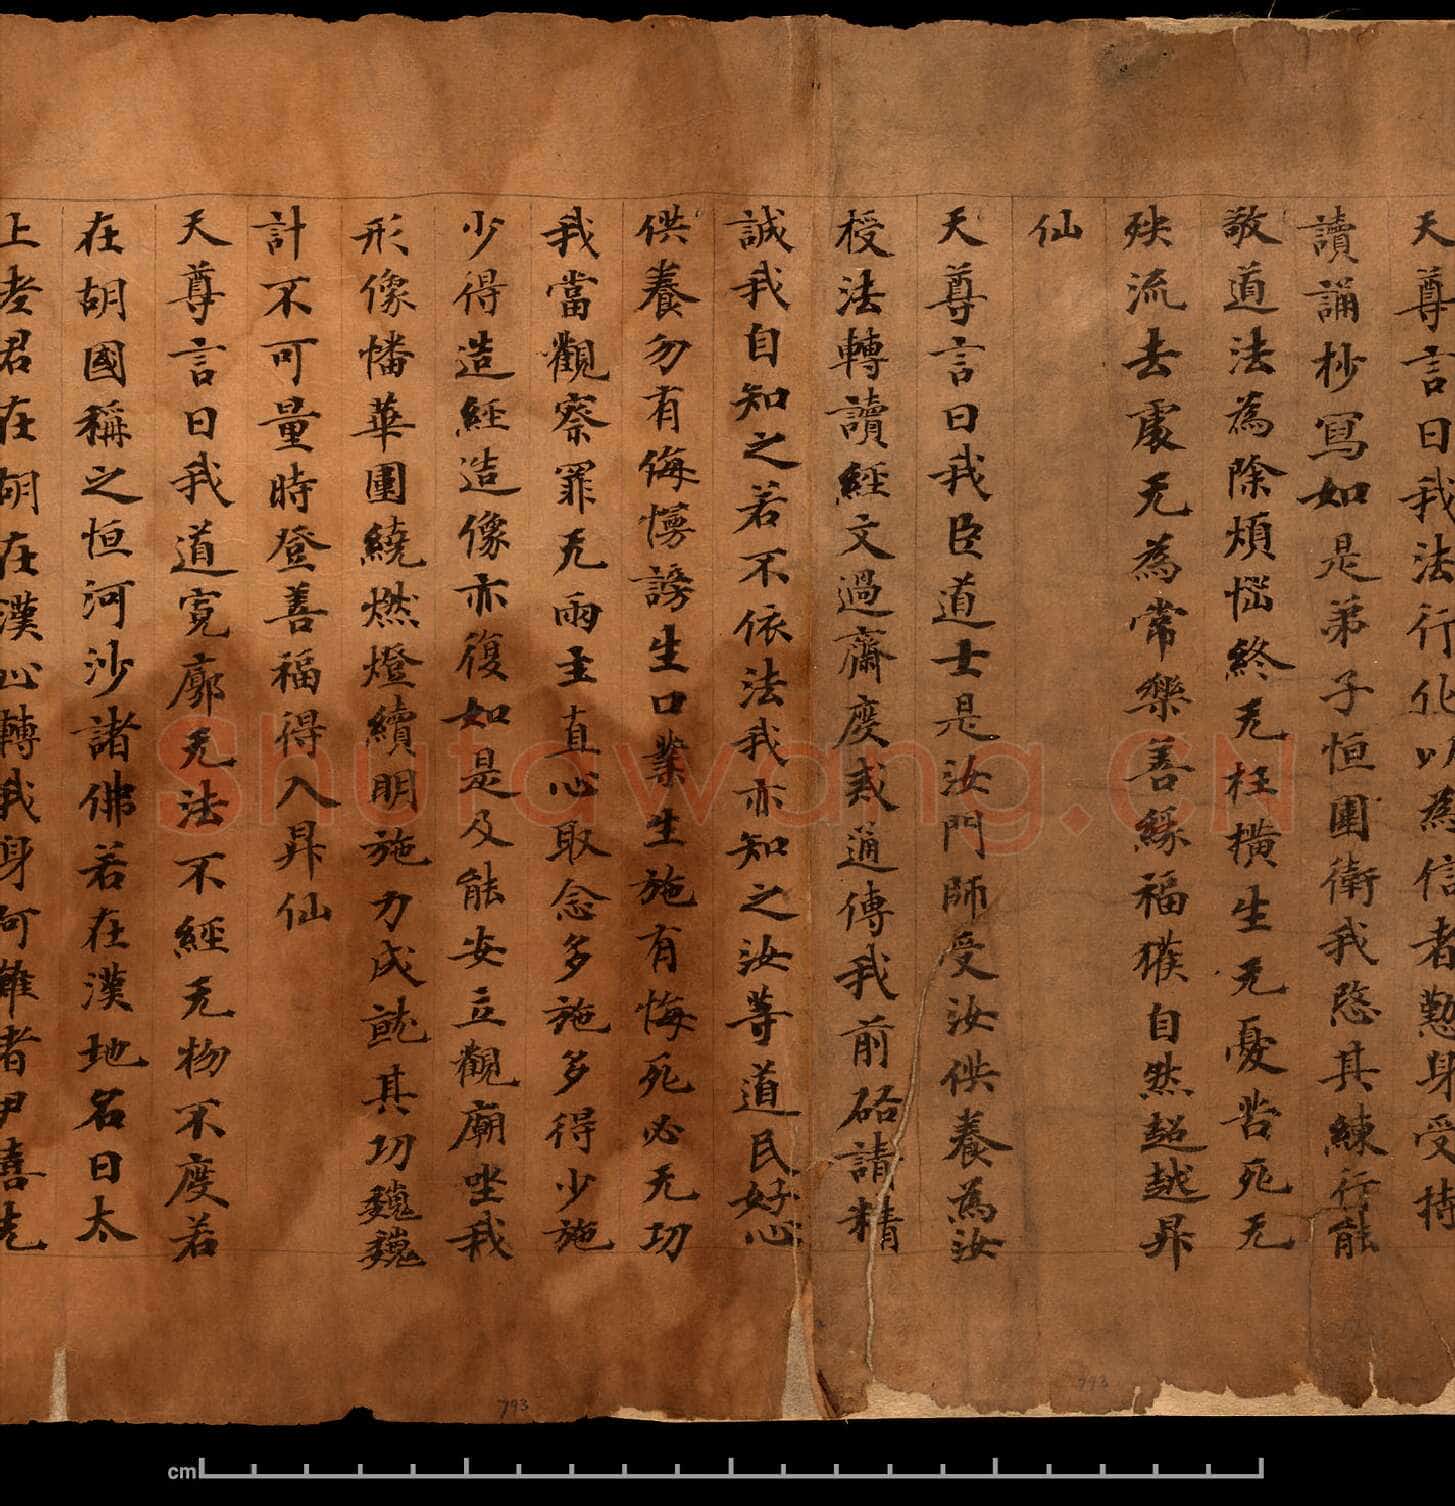 天尊言曰我法行化以為信者懃身受持
讀誦抄寫如是弟子恒圍衛我愍其練行能
敬道法為除煩惱終无枉橫生无憂苦死无
殃流去處无為常樂善緣福獲自然超越昇
仙
天尊言曰我臣道士是汝門師受汝供養為汝
授法轉讀經文過齋度戒通傳我前啟請精
誠我自知之若不依法我亦知之汝等道民好心
供養勿有侮㥬謗生口業生施有悔死必无功
我當觀察罪无雨主直心取念多施多得少施
少得造經造像亦復如是及能安立觀廟坐我
形像幡華圍繞燃燈續明施力成就其功巍巍
計不可量時登善福得入昇仙
天尊言曰我道寬廓无法不經无物不度若
在胡國稱之恒河沙諸佛若在漢地名曰太
上老君在胡在漢心轉我身何難者尹喜先
Shutawang.CN
793
793
cm